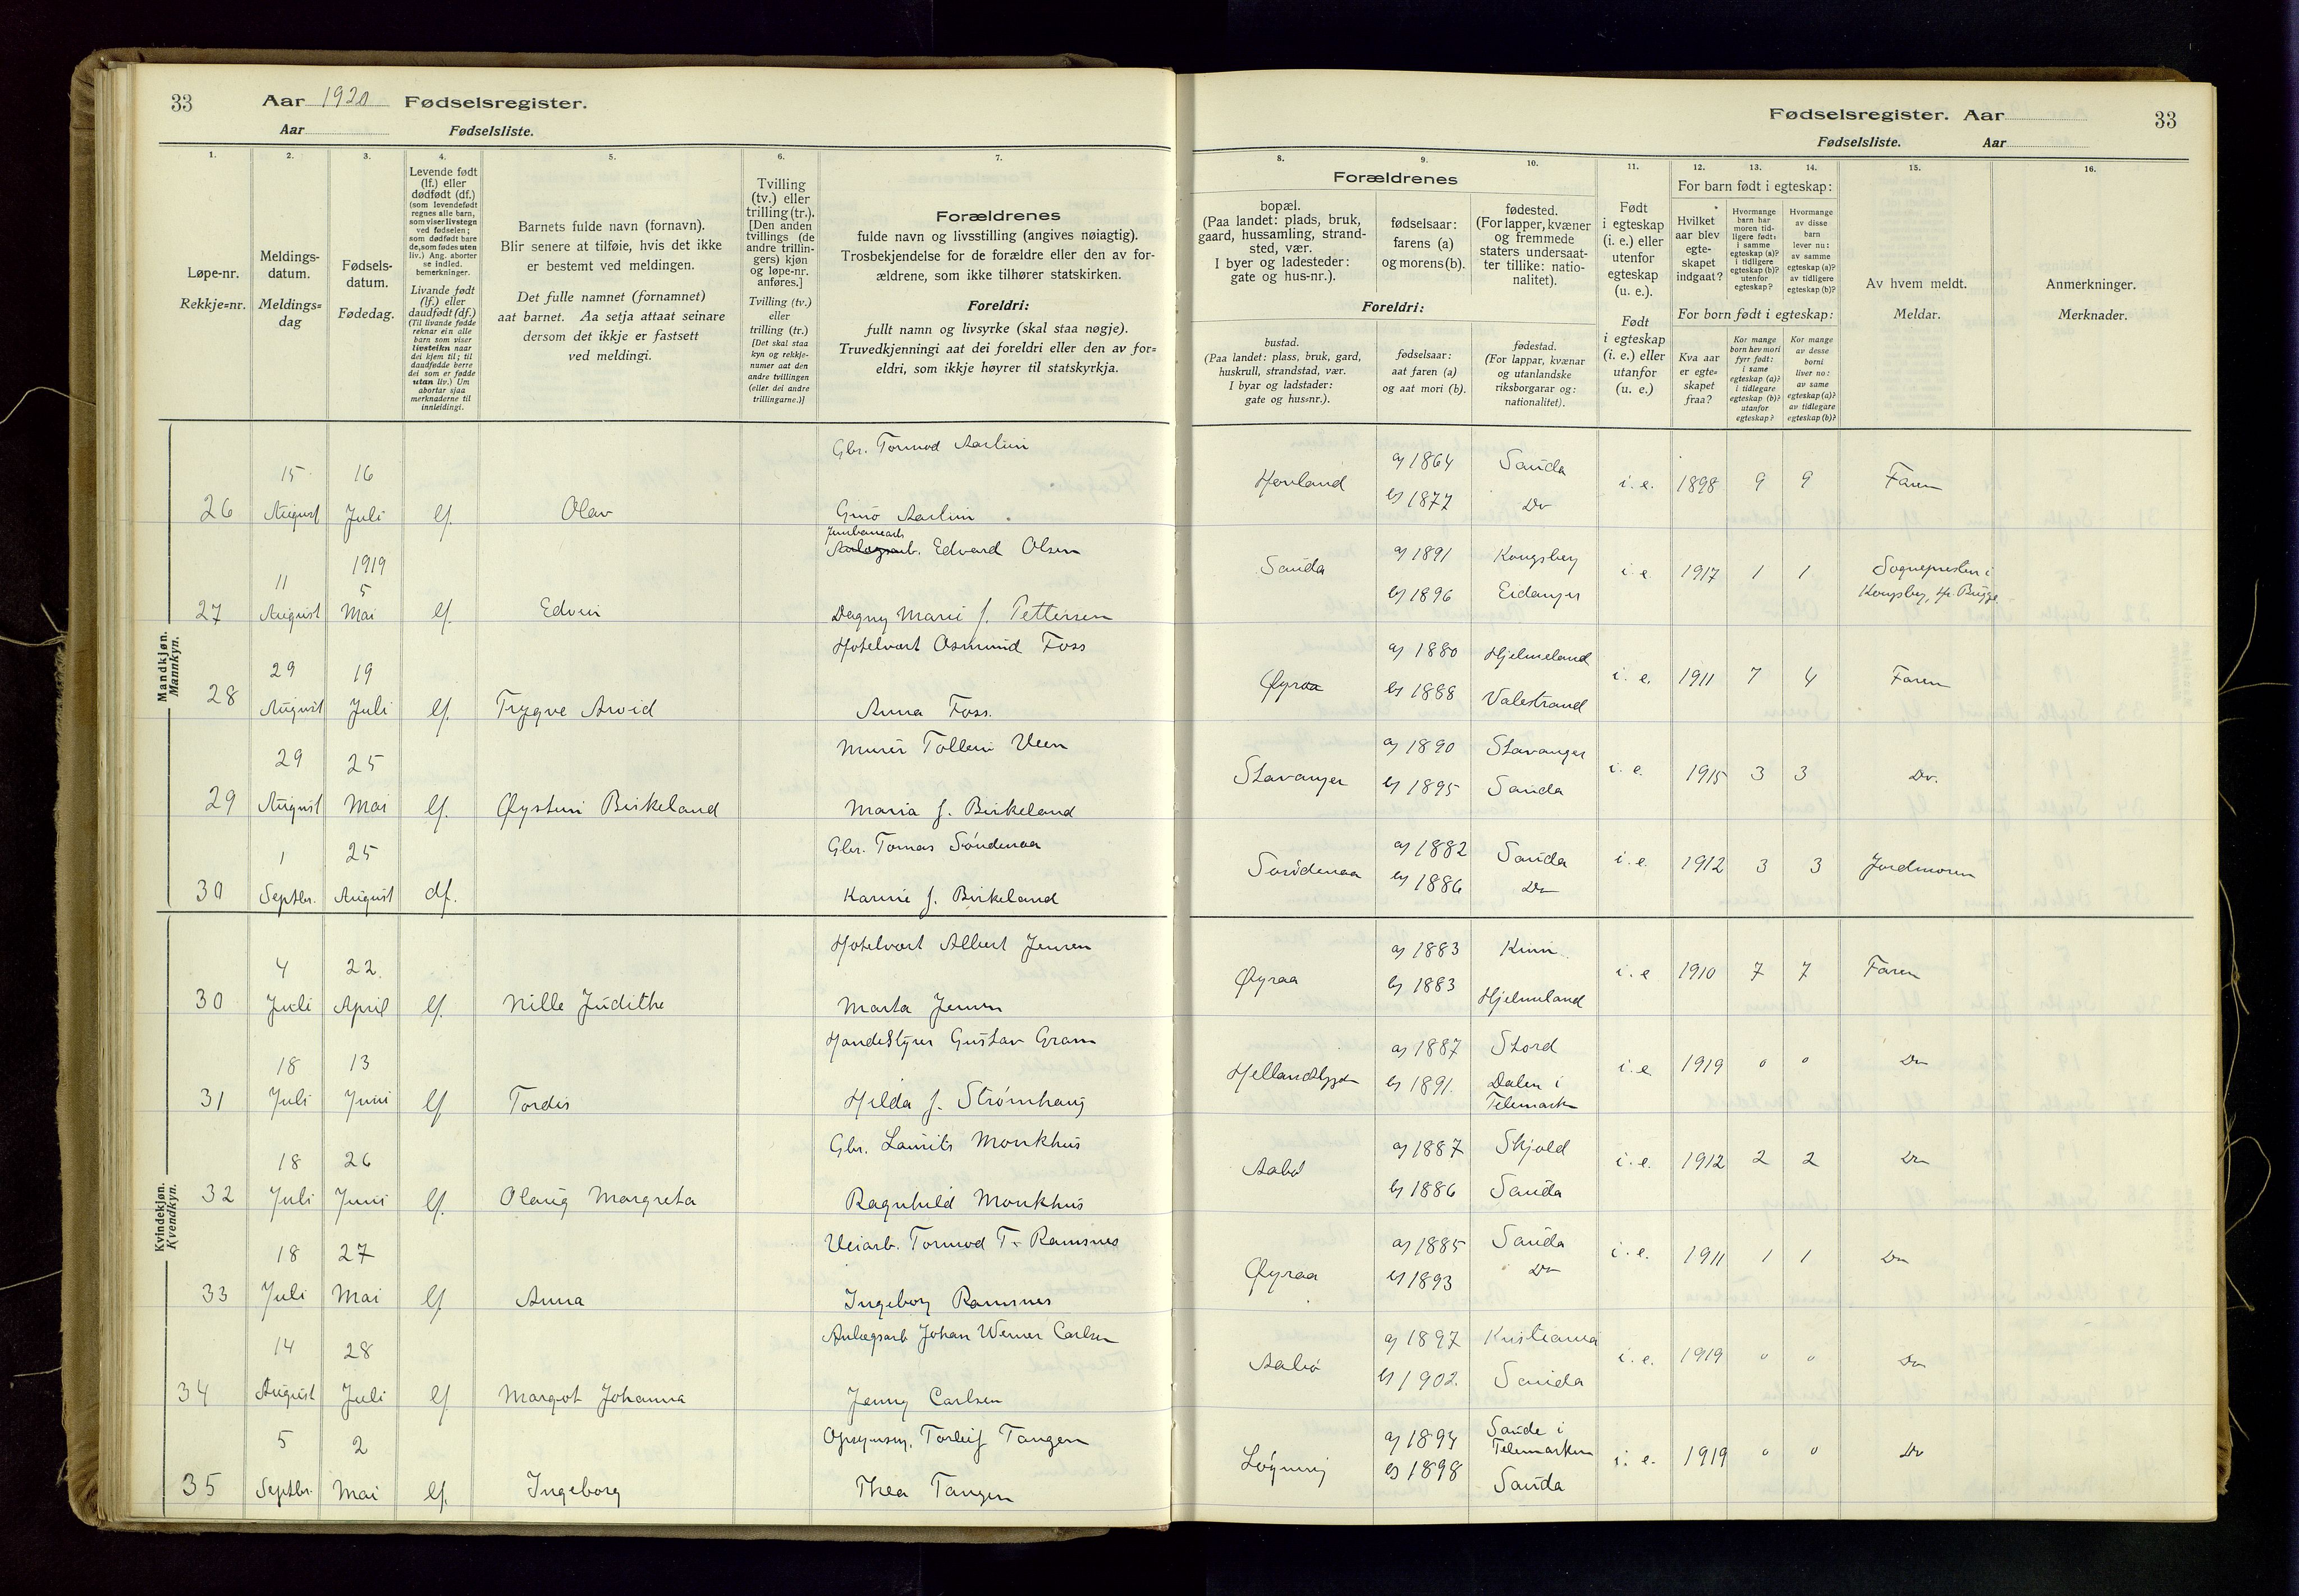 33 Aar 1920 Fødselsregister.
Aar Fødselsliste.
1. 2. 3. 4. 5. 6. 7.
Løpe-nr.
Rekkje=nr.
Meldings-
datum.
Meldings=
dag
Fødsels-
datum.
Fødedag.
Levende født
(lf.) eller
dødfødt (df.)
(som levendefødt
regnes alle barn,
som viser livstegn
ved fødselen;
som dødfødt bare
de, som fødes uten
liv.) Ang. aborter
se indled.
bemerkninger.
Livande født
(lf.) eller
daudfødt (df.)
(Til livande fødde
reknar ein alle
barn som viser
livsteikn naar
dei kjem til; til
daudfødde berre
dei som er fødde
utan liv.) Um
abortar sjaa
merknaderne til
innleidingi.
Barnets fulde navn (fornavn).
Blir senere at tilføie, hvis det ikke
er bestemt ved meldingen.
Det fulle namnet (fornamnet)
aat barnet. Aa setja attaat seinare
dersom det ikkje er fastsett
ved meldingi.
Tvilling
(tv.) eller
trilling (tr.).
[Den anden
tvillings (de
andre trillin-
gers) kjøn
og løpe-nr.
anføres.]
Tvilling (tv.)
eller
trilling (tr.)
[Det skal staa
kyn og rekkje-
numer aat den
andre tvillingen
(eller dei andre
trillingarne.)]
Forældrenes
fulde navn og livsstilling (angives nøiagtig).
Trosbekjendelse for de forældre eller den av for-
ældrene, som ikke tilhører statskirken.
Foreldri:
fullt namn og livsyrke (skal staa nøgje).
Truvedkjenningi aat dei foreldri eller den av for=
eldri, som ikkje høyrer til statskyrkja.
Mandkjøn.
Mannkyn.
Gbr. Tormod Aartun
15 16
26 August Juli lf. Olav
Aartun
1919
Edvard Olsen
11 5
27 August Mai lf. Edvin Dagny Marie f. Pettersen
Hotelvært Osmund Foss
29 19
28 August Juli lf. Trygve Arvid Anna Foss.
Murer Tollein Veen
29 25
29 August Mai lf. Øystein Birkeland Maria f. Birkeland
Gbr. Tomas Søndenaa
1 25
30 Septbr. August df. Karine f. Birkeland
Kvindekjøn.
Kvendkyn.
Hotelvært Albert Jensen
4 22.
30 Juli April lf. Nille Judithe Marta Jensen
Gustav Gram
18 13
31 Juli Juni lf Tordis Hilda f. Strømhaug
Gbr. Laurits Monkhus
18 26
32 Juli Juni lf. Olaug Margreta Ragnhild Monkhus
Veiarb. Tormod T. Ramsnes
18 27
33 Juli Mai lf Anna Ingeborg Ramsnes
Anlægsarb. Johan Werner Carlsen
14 28
34 August Juli lf Margot Johanna Jenny Carlsen
Torleif Tangen
5 2
35 Septbr. Mai lf. Ingeborg Thea Tangen
Fødselsregister. Aar 33
Fødselsliste. Aar
8. 9. 10. 11. 12. 13. 14. 15. 16.
Forældrenes
bopæl.
(Paa landet: plads, bruk,
gaard, hussamling, strand-
sted, vær.
I byer og ladesteder:
gate og hus-nr.).
fødselsaar:
farens (a)
og morens (b).
fødested.
(For lapper, kvæner
og fremmede
staters undersaat-
ter tillike: natio-
nalitet).
Foreldri:
bustad.
(Paa landet: plass, bruk, gard,
huskrull, strandstad, vær.
I byar og ladstader:
gate og hus=nr.).
fødselsaar:
aat faren (a)
og aat mori (b).
fødestad.
(For lappar, kvænar
og utanlandske
riksborgarar og:
nationalitet).
Født
i egteskap
(i. e.) eller
utenfor
egteskap
(u. e.).
Født
i egteskap
(i. e.) eller
utanfor
(u. e.)
For barn født i egteskap:
Hvilket
aar blev
egte-
skapet
indgaat?
Hvormange
barn har
moren tid-
ligere født:
i samme
egteskap (a)?
i tidligere
egteskap (b)?
utenfor
egteskap?
Hvormange
av disse
barn
lever nu:
av samme
egteskap (a)?
av tidligere
egteskap (b)?
For born født i egteskap:
Kva aar
er egte=
skapet
fraa?
Kor mange
born hev mori
fyrr født:
i same
egteskap (a)?
i tidlegare
egteskap (b)?
utanfor
egteskap?
Kor mange
av desse
borni
liver no:
av same
egteskap (a)?
av tidlegare
egteskap (b)?
Av hvem meldt.
Meldar.
Anmerkninger.
Merknader.
Herland a) 1864 Sauda i. e. 1898 9 9 Faren
b) 1877 Do
Sauda a) 1891 Kongsberg i. e. 1917 1 1 Sognepresten i
b) 1896 Eidanger Kongsberg, Hr. Brügge
Øyraa a) 1880 Hjelmeland i. e. 1911 7 4 Faren
b) 1888 Valestrand
Stavanger a) 1890 Stavanger i. e. 1915 3 3 Do.
b) 1895 Sauda
Søndenaa a) 1882 Sauda i. e. 1912 3 3 Jordmoren
b) 1886 Do
Øyraa a) 1883 Kinn i. e 1910 7 7 Faren
b) 1883 Hjelmeland
a) 1887 Stord i. e. 1919 0 0 Do
b) 1891. Dalen i
Telemark
Aabø a) 1887 Skjold i. e. 1912 2 2 Do
b) 1886 Sauda
Øyraa a) 1885 Sauda i. e. 1911 1 1 Do
b) 1893 Do
Aabø a) 1897 Kristiania i. e. 1919 0 0 Do
b) 1902. Sauda
a) 1894 Saude i
Telemarken i. e. 1919 0 0 Do
b) 1898 Sauda